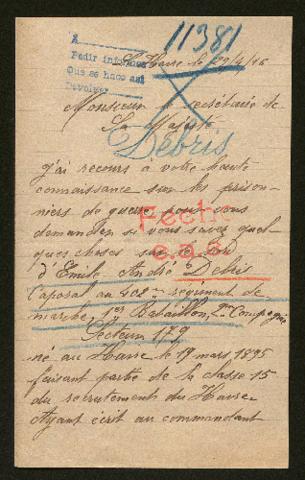 11381
A
Pedir informes
Que se hace así
Devolver
Le Havre le 29/4/16
Monsieur le secrétaire de
Sa Majesté
Debris
j'ai recours à votre haute
connaissance sur les prison-
niers de guerre pour vous
demander si vous savez quel-
ques choses sur le
d'Emile André Debris
Fech.
e.a.s.
Caporal au 402me régiment de
marche, 1er Bataillon, 2me Compagnie
Secteur 179
né au Havre le 19 mars 1895
faisant partie de la classe 15
du recrutements du Havre
Ayant écrit au commandant